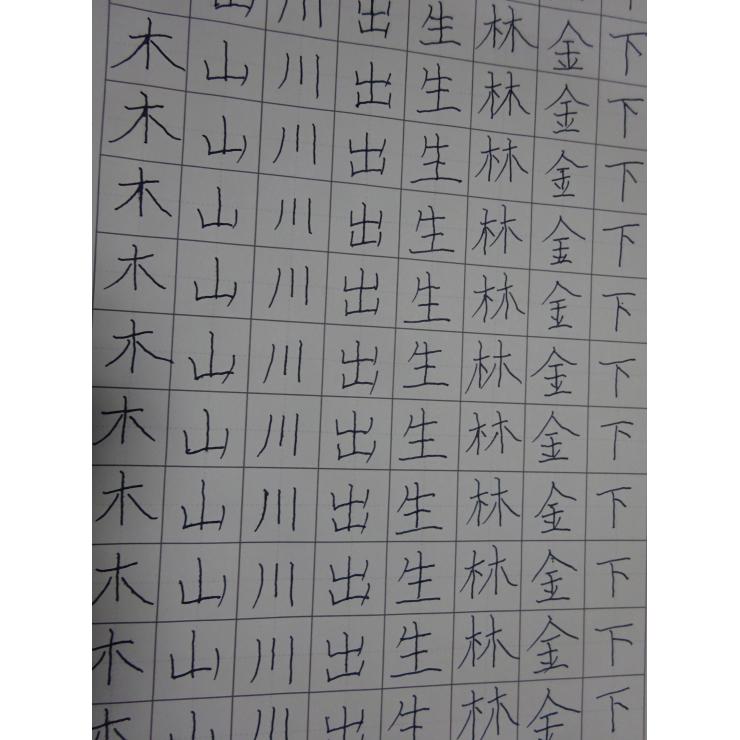 山川出生林金下
木山川出生林金下
木山川出生林金下
木山川出生林金下
木山川出生林金下
木山川出生林金下
木山川出生林金下
木山川出生林金下
木山川出生林金下
木山川出生林金下
木山川出生林金下